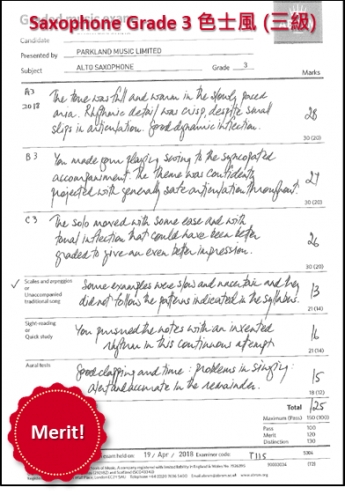 Saxophone Grade 3 色士風 (三級)
Graded music exam
Candidate
Presented by PARKLAND MUSIC LIMITED
Subject ALTO SAXOPHONE Grade 3
Marks
A3
2018
The tone was full and warm in the slowly paced
aria. Rhythmic detail was crisp, despite small
slips in articulation. Good dynamic inflection.
28
30 (20)
B3
You made your playing swing to the syncopated
accompaniment. The theme was confidently
projected with generally safe articulation throughout.
27
30 (20)
C3
The solo moved with some ease and with
tonal inflection that could have been better
graded to give an even better impression.
26
30 (20)
✓ Scales and arpeggios
or
Unaccompanied
traditional song
Some examples were slow and uncertain and they
did not follow the patterns indicated in the syllabus.
13
21 (14)
Sight-reading
or
Quick study
You pursued the notes with an invented
rhythm in this continuous attempt
16
21 (14)
Aural tests
Good clapping and time: problems in singing:
alert and accurate in the remainder.
15
18 (12)
Total 125
Maximum (Pass) 150 (100)
Pass 100
Merit 120
Distinction 130
Merit!
held on 19 / Apr / 2018 Examiner code T115